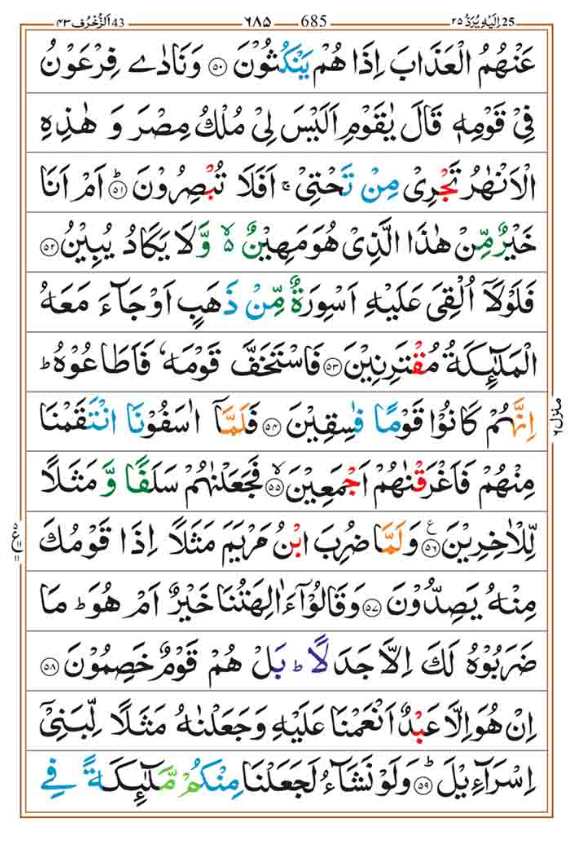 25 اِلَيْهِ يُرَدُّ ٢٥ 685 ٦٨٥ 43 اَلزُّخْرُف ٤٣
عَنْهُمُ الْعَذَابَ اِذَا هُمْ يَنْكُثُوْنَ ۝٥٠ وَنَادٰى فِرْعَوْنُ
فِيْ قَوْمِهٖ قَالَ يٰقَوْمِ اَلَيْسَ لِيْ مُلْكُ مِصْرَ وَ هٰذِهِ
الْاَنْهٰرُ تَجْرِيْ مِنْ تَحْتِيْ ۚ اَفَلَا تُبْصِرُوْنَ ؕ۝٥١ اَمْ اَنَا
خَيْرٌ مِّنْ هٰذَا الَّذِيْ هُوَ مَهِيْنٌ ۙ۬ وَّلَا يَكَادُ يُبِيْنُ ۝٥٢
فَلَوْلَاۤ اُلْقِيَ عَلَيْهِ اَسْوِرَةٌ مِّنْ ذَهَبٍ اَوْ جَآءَ مَعَهُ
الْمَلٰٓئِكَةُ مُقْتَرِنِيْنَ ۝٥٣ فَاسْتَخَفَّ قَوْمَهٗ فَاَطَاعُوْهُ ؕ
اِنَّهُمْ كَانُوْا قَوْمًا فٰسِقِيْنَ ۝٥٤ فَلَمَّاۤ اٰسَفُوْنَا انْتَقَمْنَا
مِنْهُمْ فَاَغْرَقْنٰهُمْ اَجْمَعِيْنَ ۙ۝٥٥ فَجَعَلْنٰهُمْ سَلَفًا وَّ مَثَلًا
لِّلْاٰخِرِيْنَ ۝٥٦ ع وَلَمَّا ضُرِبَ ابْنُ مَرْيَمَ مَثَلًا اِذَا قَوْمُكَ
مِنْهُ يَصِدُّوْنَ ۝٥٧ وَقَالُوْۤا ءَاٰلِهَتُنَا خَيْرٌ اَمْ هُوَ ؕ مَا
ضَرَبُوْهُ لَكَ اِلَّا جَدَلًا ؕ بَلْ هُمْ قَوْمٌ خَصِمُوْنَ ۝٥٨
اِنْ هُوَ اِلَّا عَبْدٌ اَنْعَمْنَا عَلَيْهِ وَجَعَلْنٰهُ مَثَلًا لِّبَنِيْۤ
اِسْرَآءِيْلَ ؕ۝٥٩ وَلَوْ نَشَآءُ لَجَعَلْنَا مِنْكُمْ مَّلٰٓئِكَةً فِي
منزل ٦